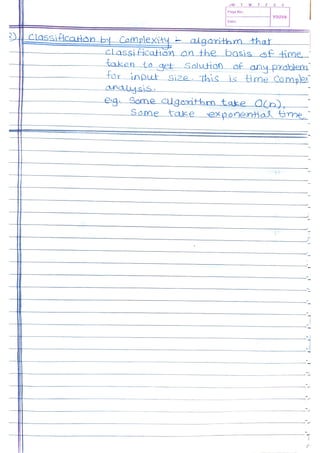 M T W T F S S
Page No.:
Date:
YOUVA
3) Classification by Complexity - algorithm that
classification on the basis of time
taken to get solution of any problem
for input size. This is time Complex
analysis.
eg. Some algorithm take O(n),
Some take exponential time